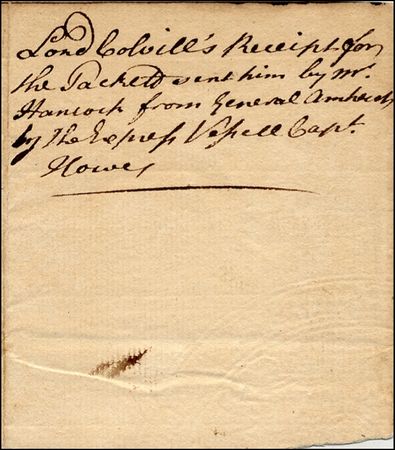 Lord Colvill's Receipt for
the Packett sent him by Mr.
Hancock from General Amherst
by the Express Vessell Capt.
Howes